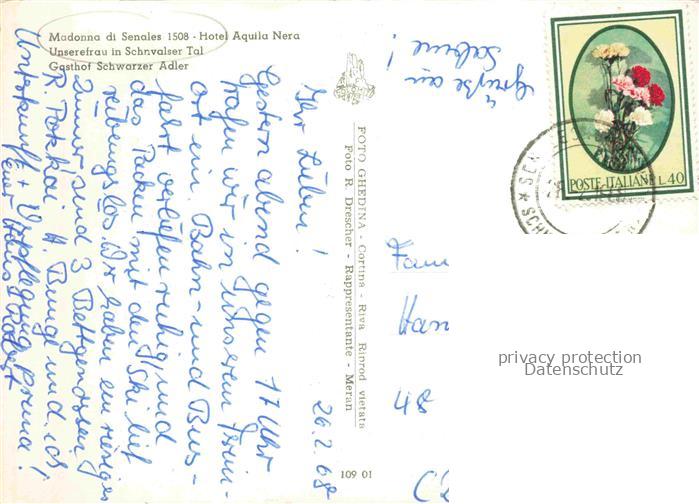 Madonna di Senales 1508 - Hotel Aquila Nera
Unserefrau in Schnvalser Tal
Gasthof Schwarzer Adler
26.2.68
Ihr Lieben!
Gestern abend gegen 17 Uhr
trafen wir in unserem
ort ein. Bahn- und Bus-
fahrt verliefen ruhig, und
das Packen mit den Ski lief
reibungslos. Wir haben ein riesiges
Zimmer sind 3 Bettgenossen,
R. H. Bunge und ich
Unterkunft + Verpflegung prima!
Euer Hans
Grüße an
Sabine!
FOTO GHEDINA - Cortina - Riva Riprod vietata
Foto R. Drescher - Rappresentante - Meran
109 01
POSTE ITALIANE L. 40
Fam
Han
48
privacy protection
Datenschutz